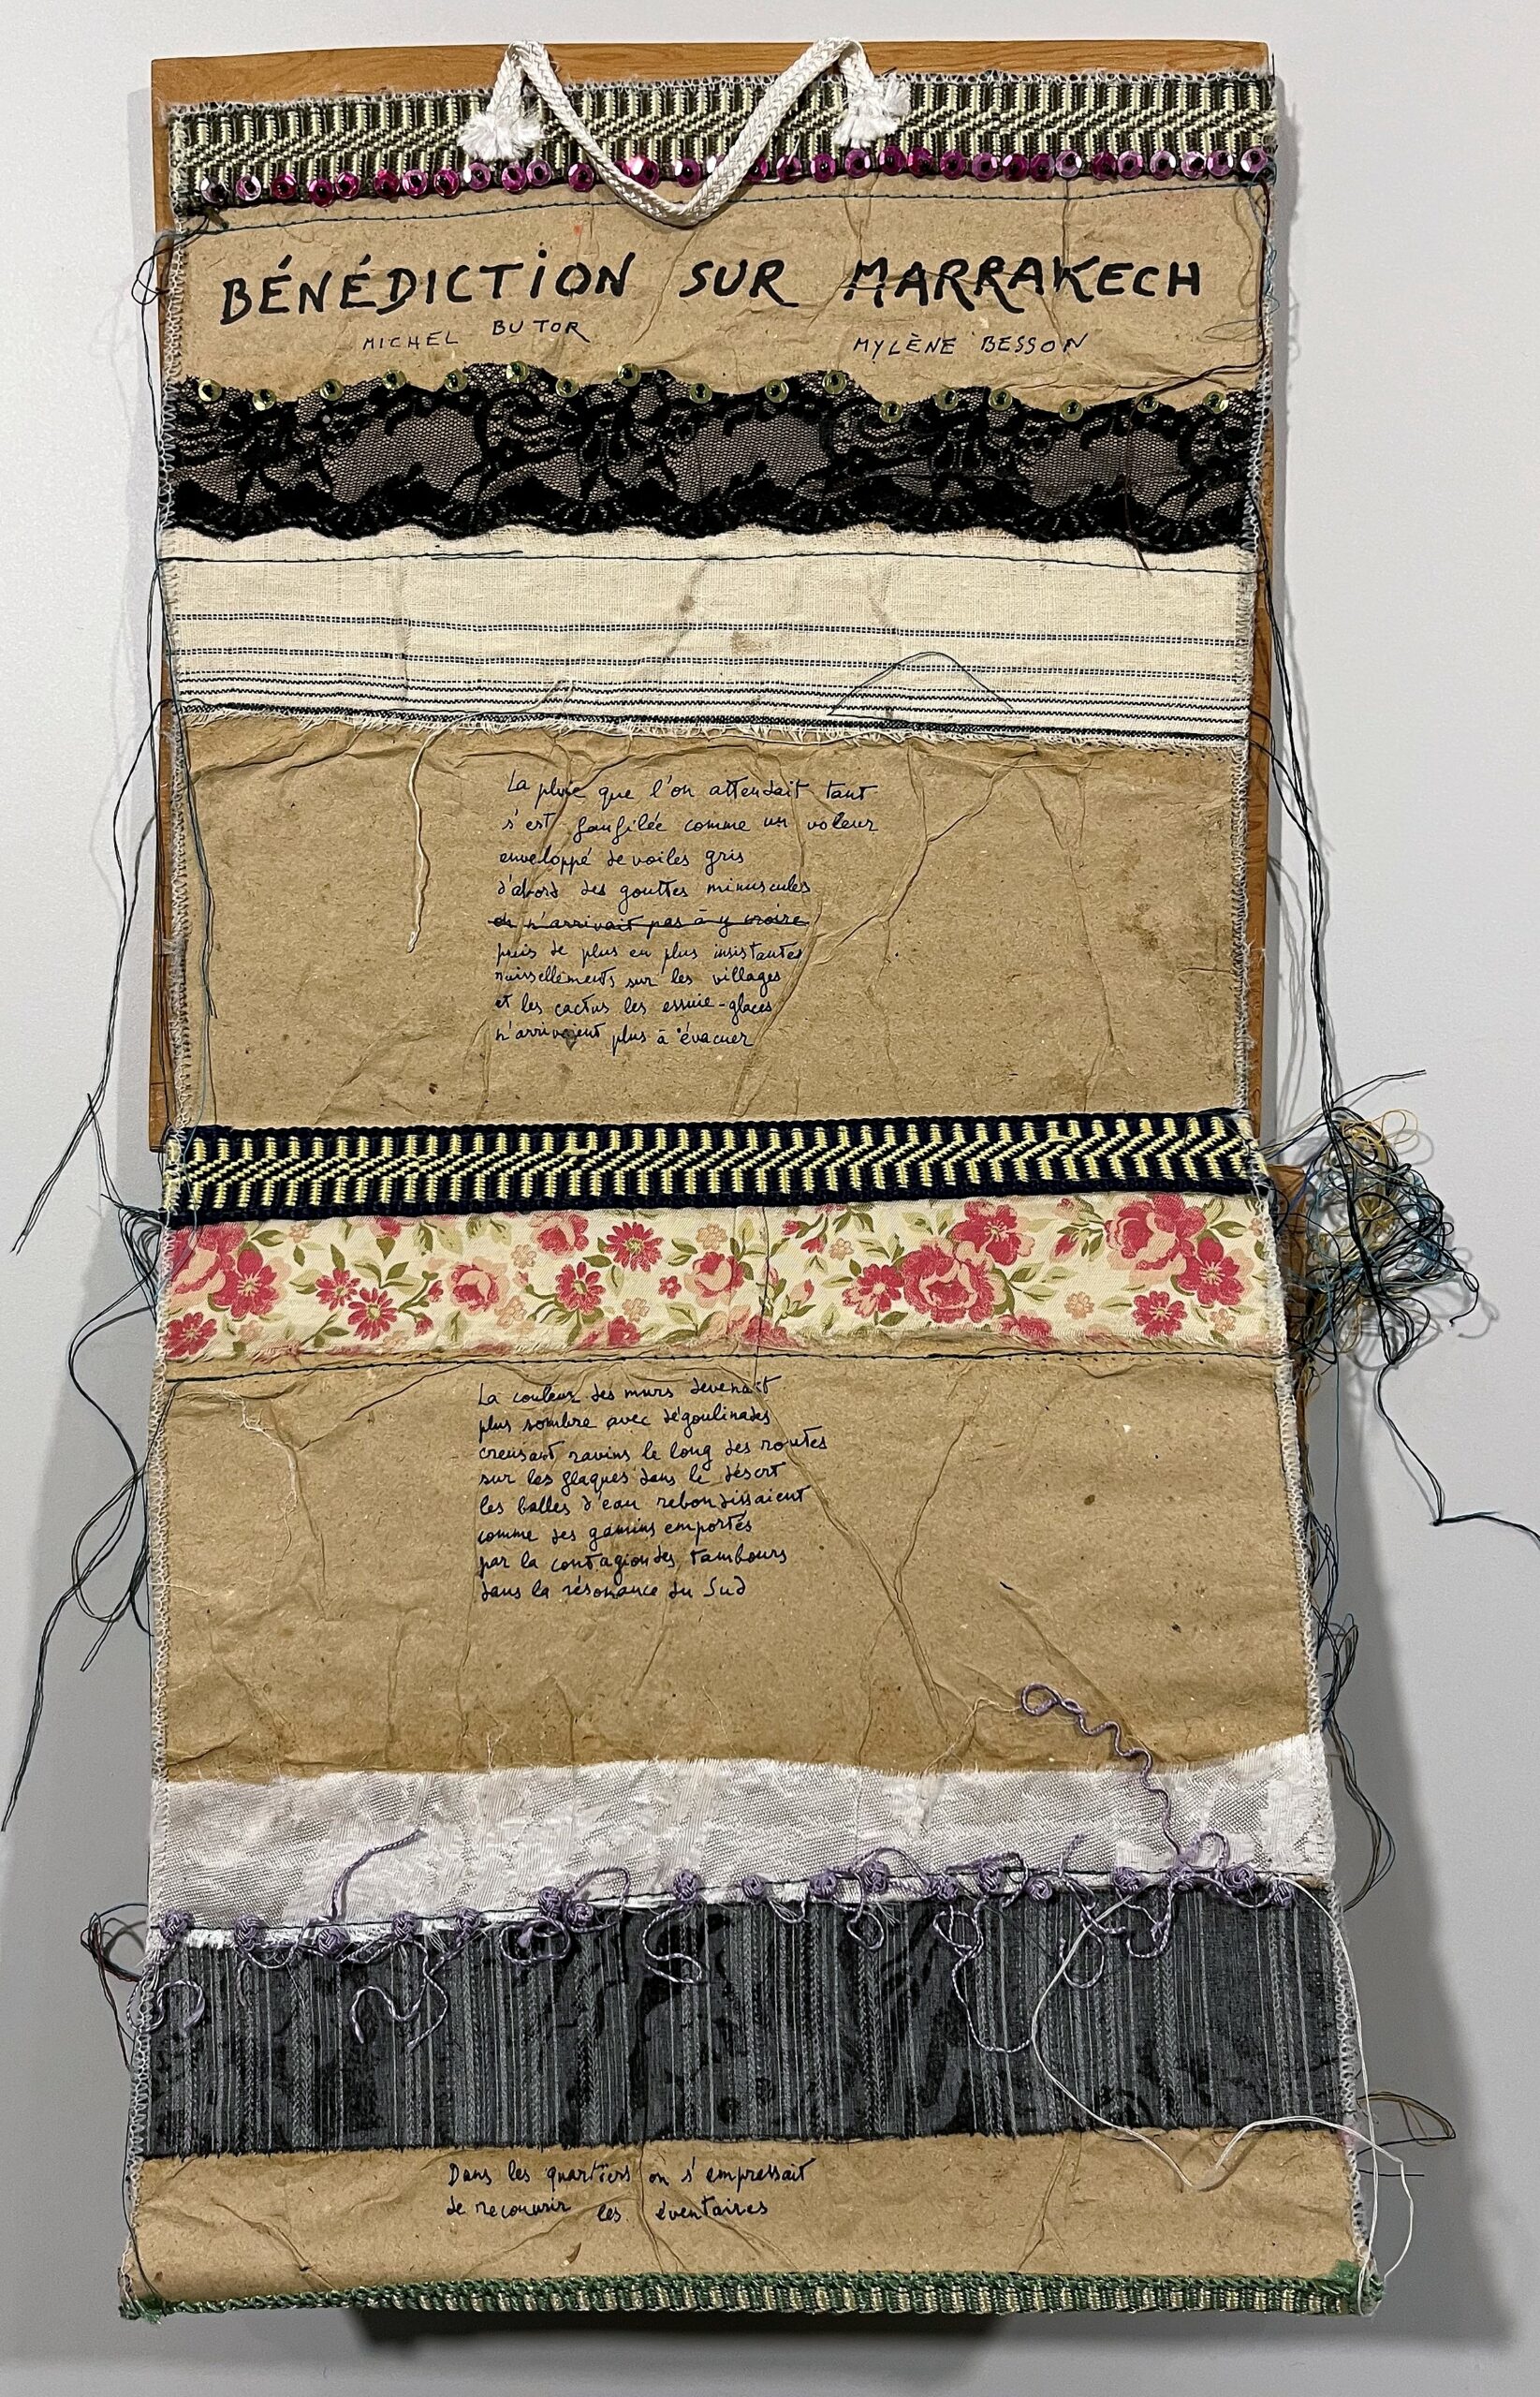 BÉNÉDICTION SUR MARRAKECH
MICHEL BUTOR MYLÈNE BESSON
La pluie que l'on attendait tant
s'est faufilée comme un voleur
enveloppé de voiles gris
d'abord des gouttes minuscules
on n'arrivait pas à y croire
puis de plus en plus insistantes
ruissellements sur les villages
et les cactus les essuie-glaces
n'arrivaient plus à évacuer
La couleur des murs devenait
plus sombre avec dégoulinades
creusant ravins le long des routes
sur les flaques dans le désert
les balles d'eau rebondissaient
comme des gamins emportés
par la contagion des tambours
dans la résonance du Sud
Dans les quartiers on s'empressait
de recouvrir les éventaires